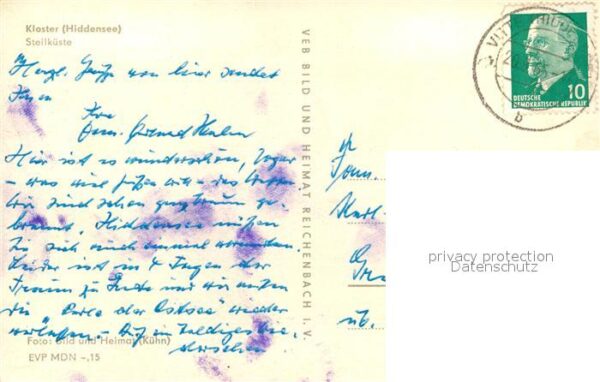 Kloster (Hiddensee)
Steilküste
Herzl. Grüße von hier sendet
Ihnen
Ihre
Hier ist es wunderschön,
– was viel heißen will – das Wetter.
Wir sind schon ganz braun ge-
brannt. Hiddensee müssen
Sie sich auch einmal
Leider ist in 4 Tagen der
Traum zu Ende und wir müssen
die "Perle der Ostsee" wieder
verlassen. – Auf ein baldiges Wie-
dersehen
Foto: Bild und Heimat (Kühn)
EVP MDN –,15
VEB BILD UND HEIMAT REICHENBACH I. V.
VITTE
b
10
DEUTSCHE
DEMOKRATISCHE REPUBLIK
Fam.
Karl-
üb.
privacy protection
Datenschutz